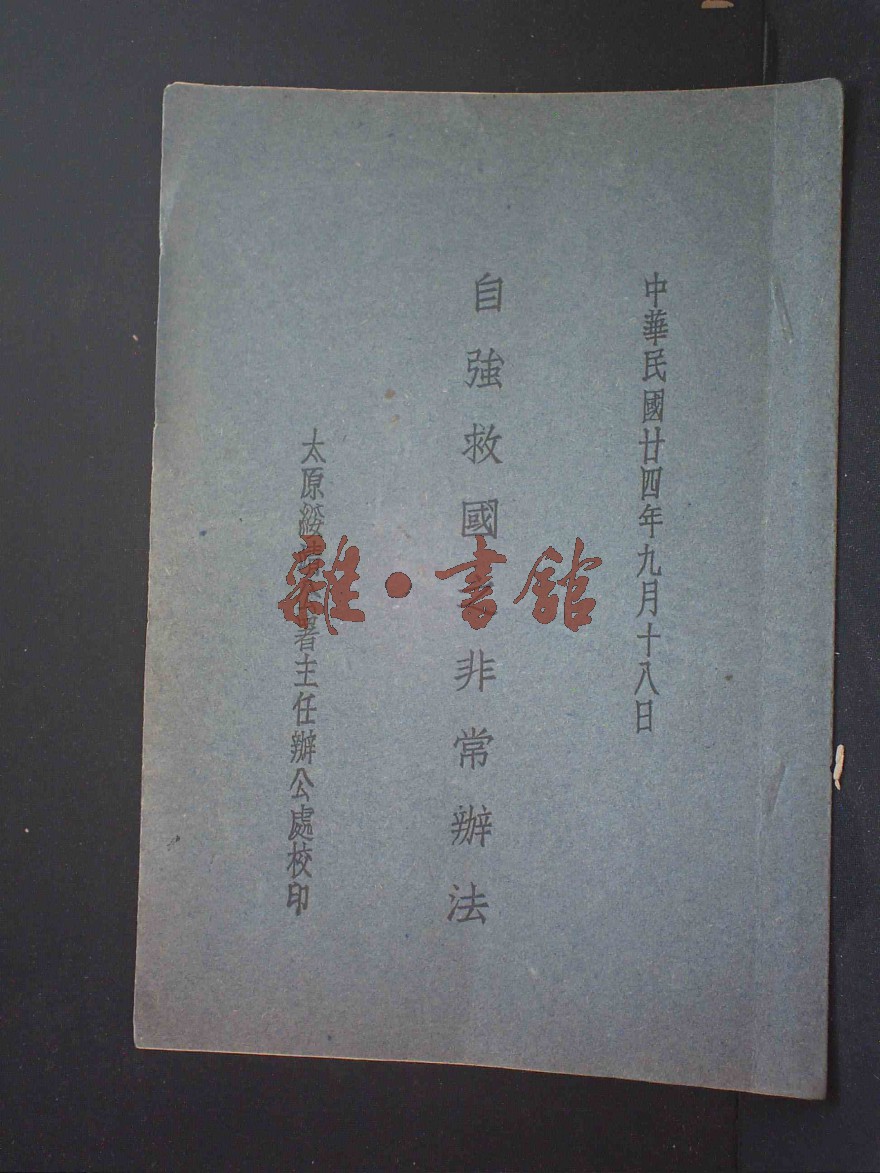 中華民國廿四年九月十八日
自強救國非常辦法
太原綏靖公署主任辦公處校印
雜·書館